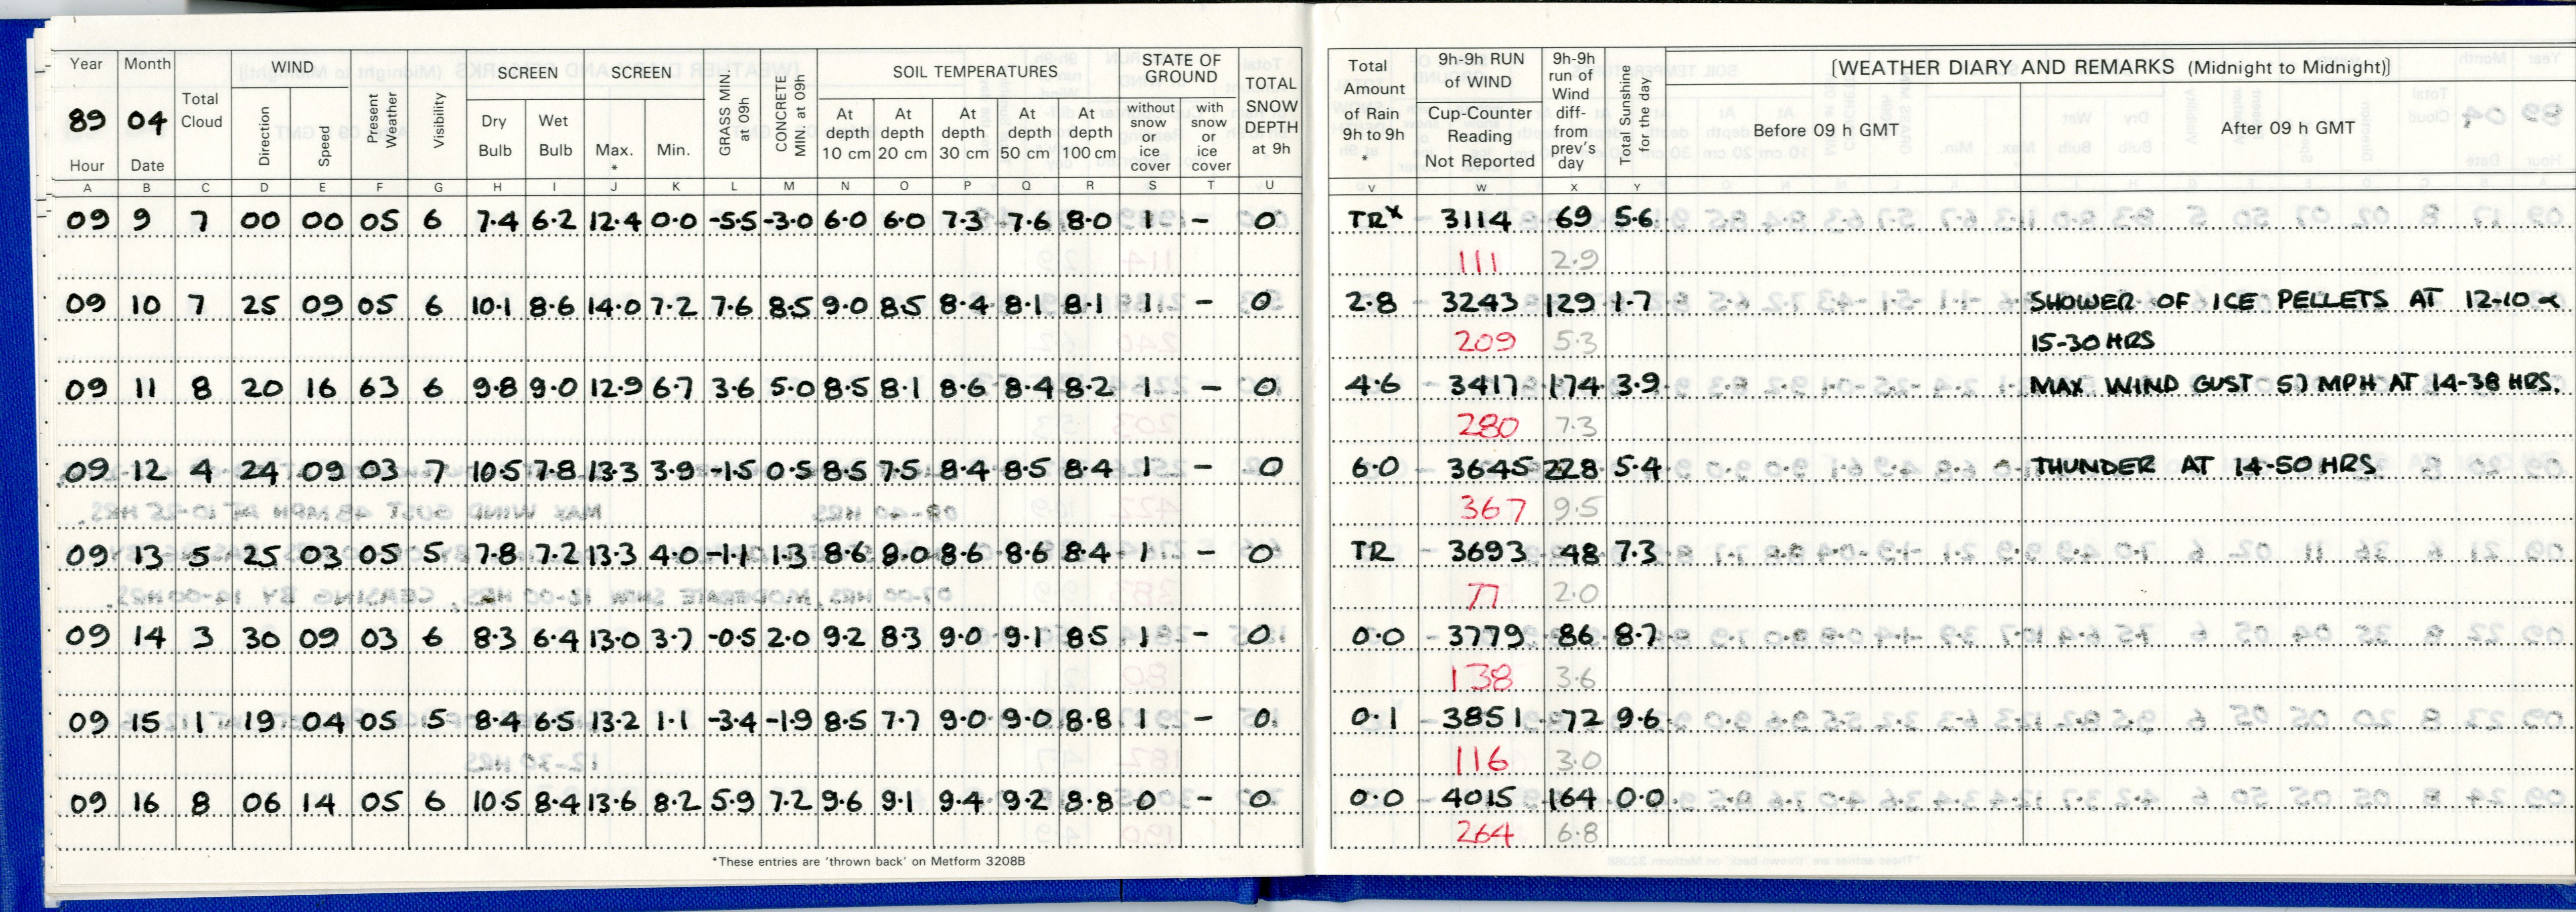 Year Month WIND SCREEN SCREEN SOIL TEMPERATURES STATE OF GROUND TOTAL SNOW DEPTH at 9h
89 04 Total Cloud Direction Speed Present Weather Visibility Dry Bulb Wet Bulb Max. * Min. GRASS MIN. at 09h CONCRETE MIN. at 09h At depth 10 cm At depth 20 cm At depth 30 cm At depth 50 cm At depth 100 cm without snow or ice cover with snow or ice cover
Hour Date
A B C D E F G H I J K L M N O P Q R S T U
09 9 7 00 00 05 6 7.4 6.2 12.4 0.0 -5.5 -3.0 6.0 6.0 7.3 7.6 8.0 1 - 0
09 10 7 25 09 05 6 10.1 8.6 14.0 7.2 7.6 8.5 9.0 8.5 8.4 8.1 8.1 1 - 0
09 11 8 20 16 63 6 9.8 9.0 12.9 6.7 3.6 5.0 8.5 8.1 8.6 8.4 8.2 1 - 0
09 12 4 24 09 03 7 10.5 7.8 13.3 3.9 -1.5 0.5 8.5 7.5 8.4 8.5 8.4 1 - 0
09 13 5 25 03 05 5 7.8 7.2 13.3 4.0 -1.1 1.3 8.6 8.0 8.6 8.6 8.4 1 - 0
09 14 3 30 09 03 6 8.3 6.4 13.0 3.7 -0.5 2.0 9.2 8.3 9.0 9.1 8.5 1 - 0
09 15 1 19 04 05 5 8.4 6.5 13.2 1.1 -3.4 -1.9 8.5 7.7 9.0 9.0 8.8 1 - 0
09 16 8 06 14 05 6 10.5 8.4 13.6 8.2 5.9 7.2 9.6 9.1 9.4 9.2 8.8 0 - 0
*These entries are 'thrown back' on Metform 3208B
Total Amount of Rain 9h to 9h * 9h-9h RUN of WIND Cup-Counter Reading Not Reported 9h-9h run of Wind diff- from prev's day Total Sunshine for the day [WEATHER DIARY AND REMARKS (Midnight to Midnight)]
Before 09 h GMT After 09 h GMT
V W X Y
TRx 3114 69 5.6
111 2.9
2.8 3243 129 1.7 SHOWER OF ICE PELLETS AT 12-10 &
209 5.3 15-30 HRS
4.6 3417 174 3.9 MAX WIND GUST 51 MPH AT 14-38 HRS.
280 7.3
6.0 3645 228 5.4 THUNDER AT 14-50 HRS
367 9.5
TR 3693 48 7.3
77 2.0
0.0 3779 86 8.7
138 3.6
0.1 3851 72 9.6
116 3.0
0.0 4015 164 0.0
264 6.8